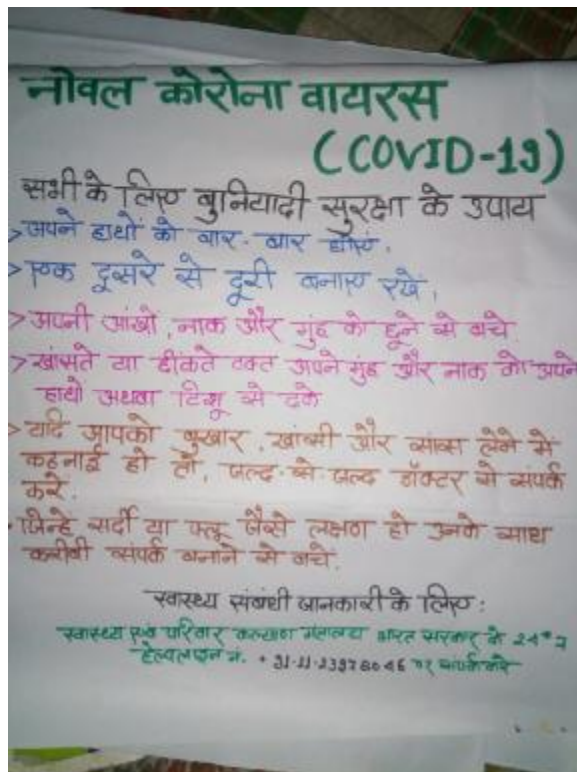 नोवल कोरोना वायरस
(COVID-19)
सभी के लिए बुनियादी सुरक्षा के उपाय
> अपने हाथों को बार-बार धोएं.
> एक दूसरे से दूरी बनाए रखें.
> अपनी आंखो, नाक और मुंह को छूने से बचे
> खांसते या छीकते वक्त अपने मुंह और नाक को अपने
हाथो अथवा टिशू से ढके
> यदि आपको बुखार, खांसी और सांस लेने में
कठनाई हो तो, जल्द-से-जल्द डॉक्टर से संपर्क
करे.
जिन्हे सर्दी या फ्लू जैसे लक्षण हो उनके साथ
करीबी संपर्क बनाने से बचे.
स्वास्थ्य संबंधी जानकारी के लिए:
स्वास्थ्य एवं परिवार कल्याण मंत्रालय भारत सरकार के 24*7
हेल्पलाइन नं. +91-11-23978046 पर संपर्क करे